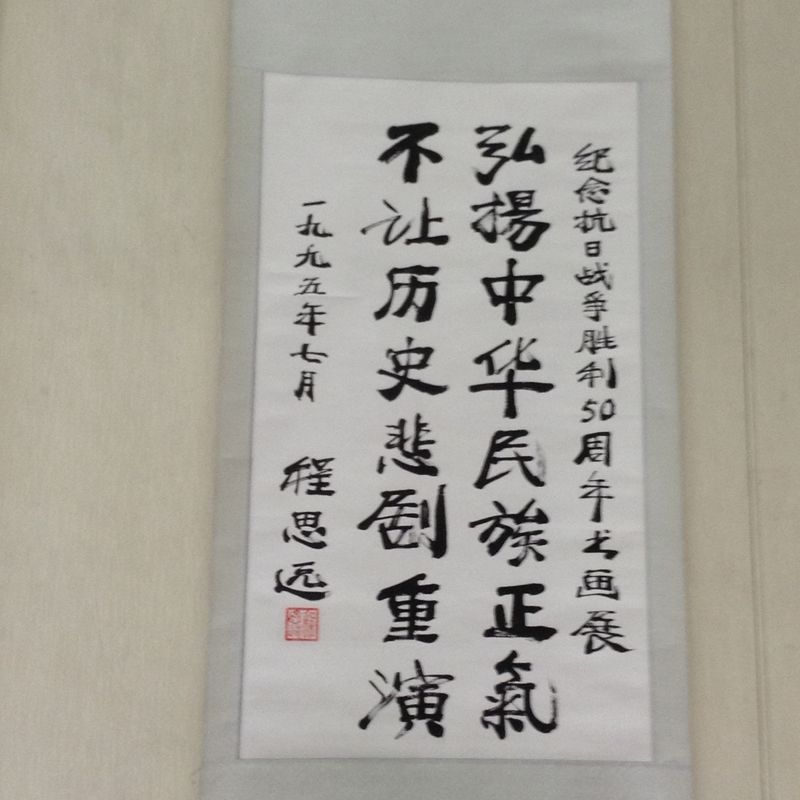 纪念抗日战争胜利50周年书画展
弘揚中华民族正氣
不让历史悲剧重演
一九九五年七月 程思远